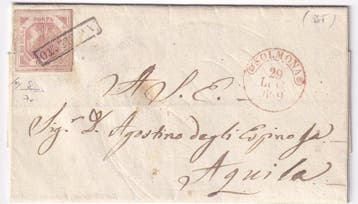 POSTA
ANNULLATO
SOLMONA
29
A S. E.
Sig.r D. Agostino degli Espinosa
Aquila